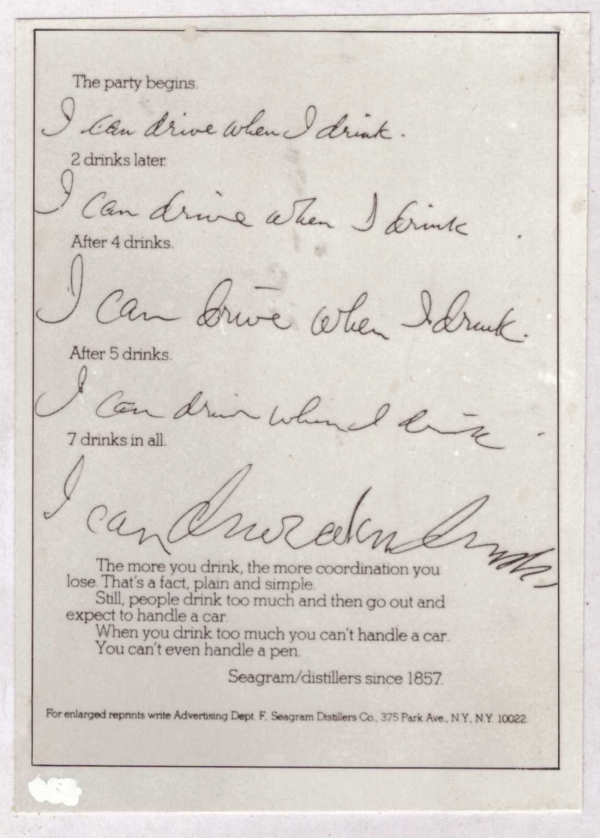 The party begins.
I can drive when I drink.
2 drinks later.
I can drive when I drink.
After 4 drinks.
I can drive when I drink.
After 5 drinks.
I can drive when I drink.
7 drinks in all.
I can drive when drink
The more you drink, the more coordination you
lose. That's a fact, plain and simple.
Still, people drink too much and then go out and
expect to handle a car.
When you drink too much you can't handle a car.
You can't even handle a pen.
Seagram/distillers since 1857.
For enlarged reprints write Advertising Dept. F, Seagram Distillers Co., 375 Park Ave., N.Y., N.Y. 10022.